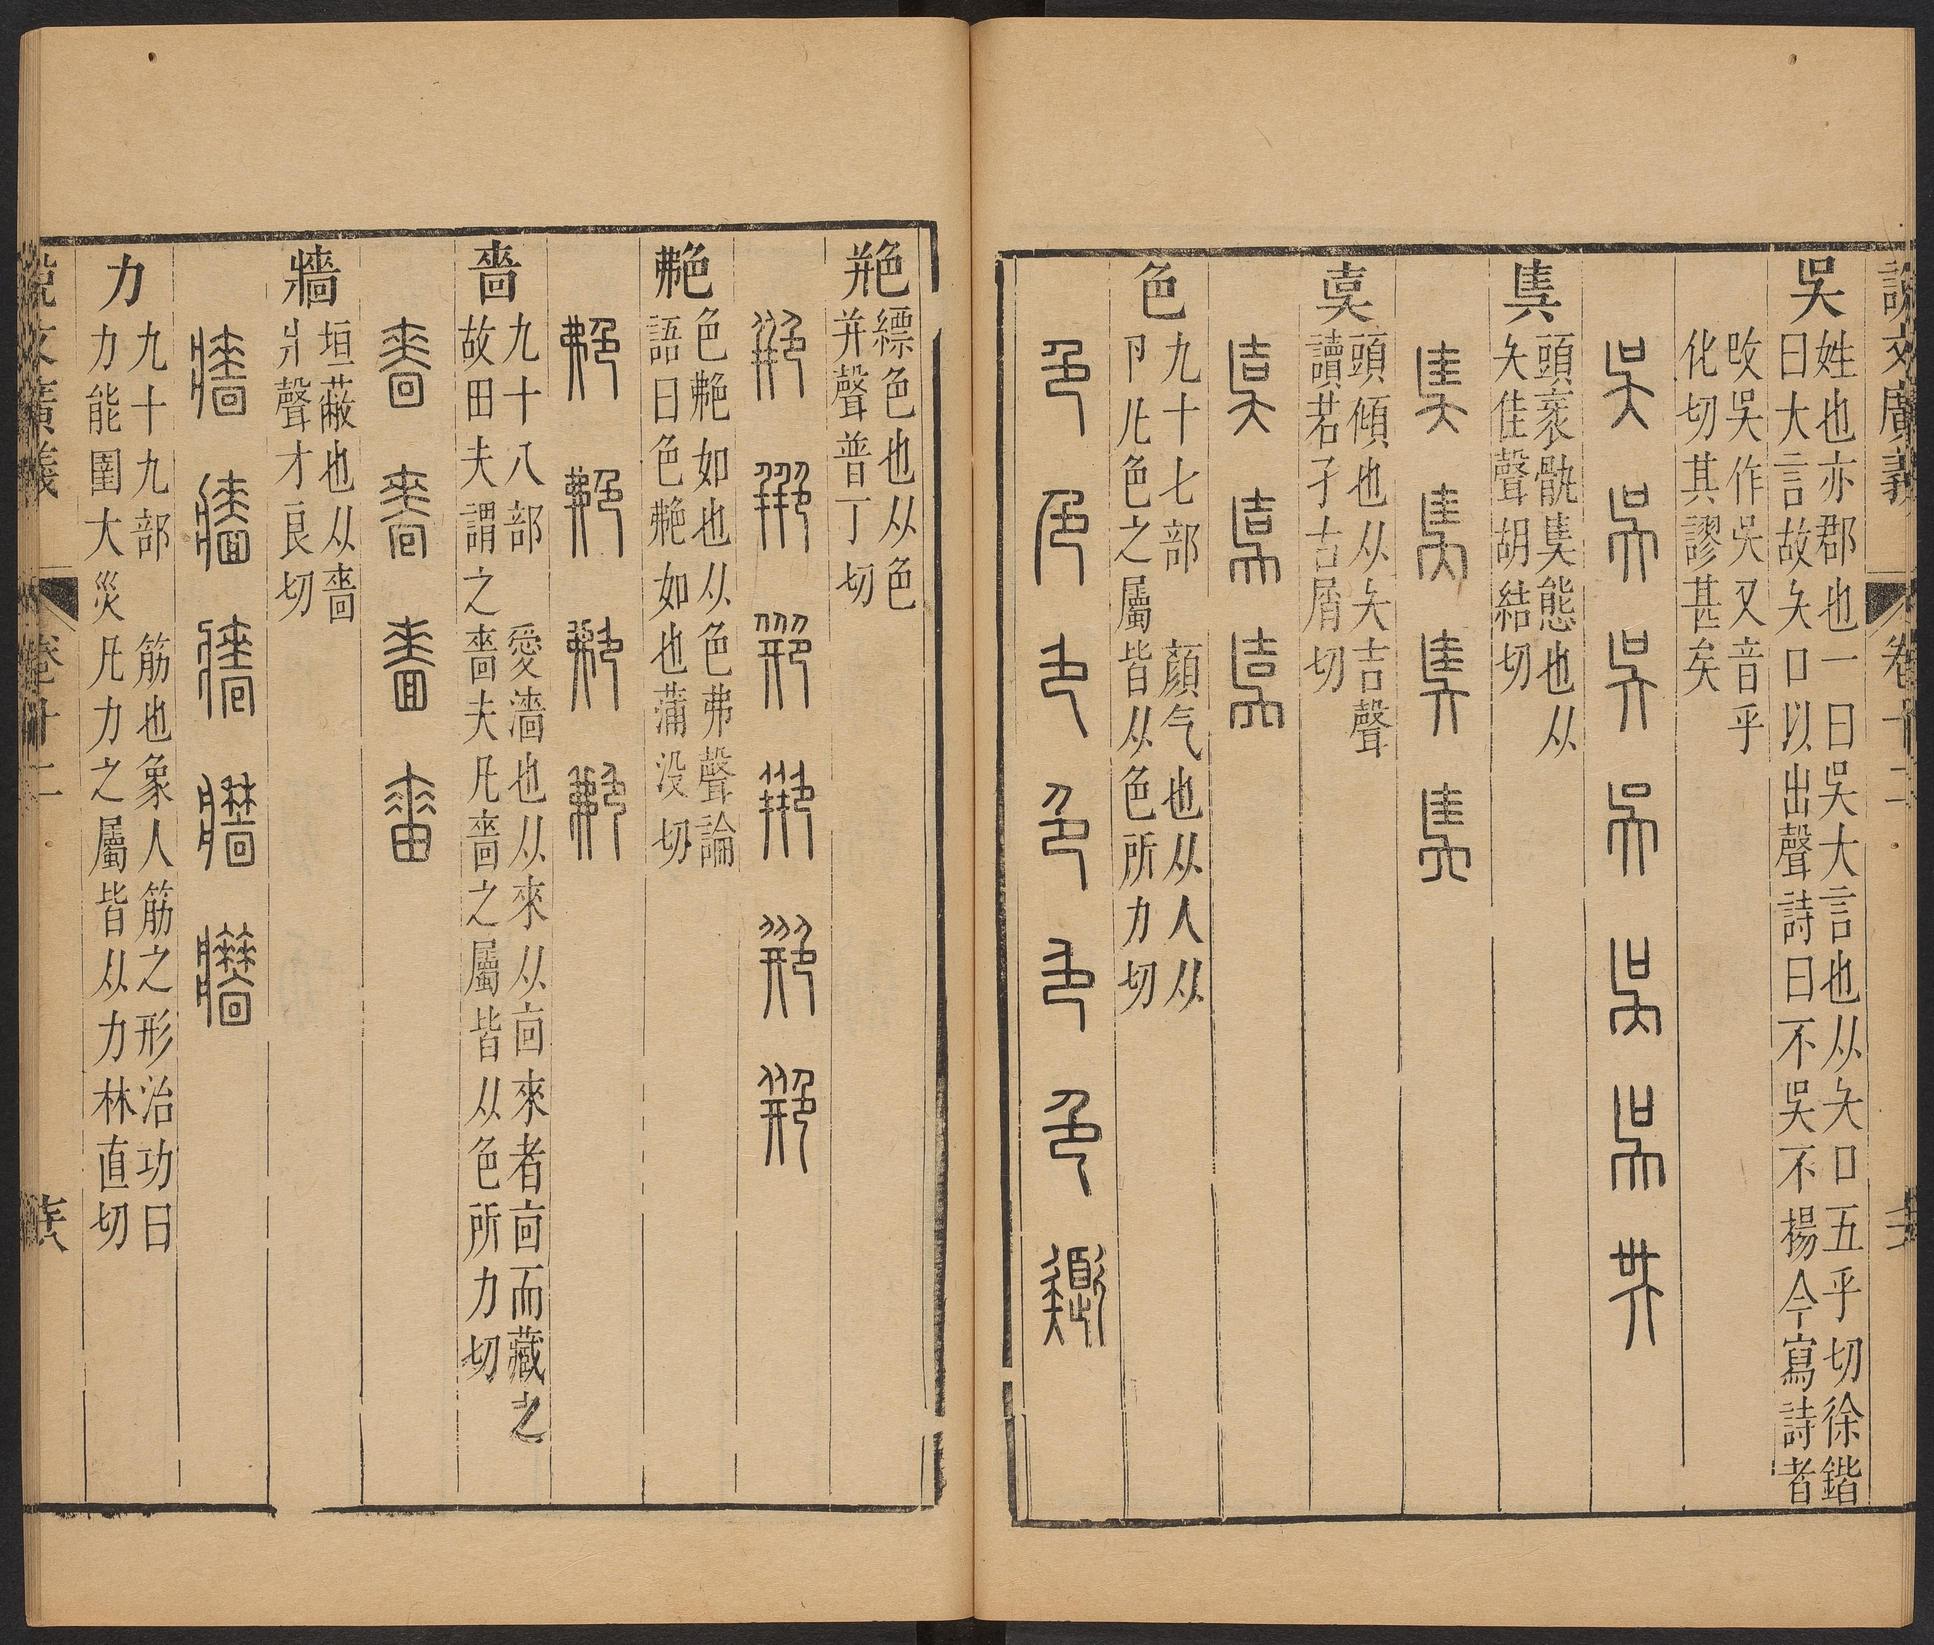 說文廣義 卷十二
吳
姓也亦郡也一曰吳大言也从夨口五乎切徐鍇
曰大言故夨口以出聲詩曰不吳不揚今寫詩者
改吳作吴又音乎
化切其謬甚矣
頭衺骫奊態也从
夨圭聲胡結切
頭傾也从夨吉聲
讀若孑古屑切
色
九十七部 顏气也从人从
卪凡色之屬皆从色所力切
艵
縹色也从色
并聲普丁切
艴
色艴如也从色弗聲論
語曰色艴如也蒲没切
嗇
九十八部 愛濇也从來从㐭來者㐭而藏之
故田夫謂之嗇夫凡嗇之屬皆从色所力切
牆
垣蔽也从嗇
爿聲才良切
力
九十九部 筋也象人筋之形治功曰
力能圉大災凡力之屬皆从力林直切
說文廣義 卷十二